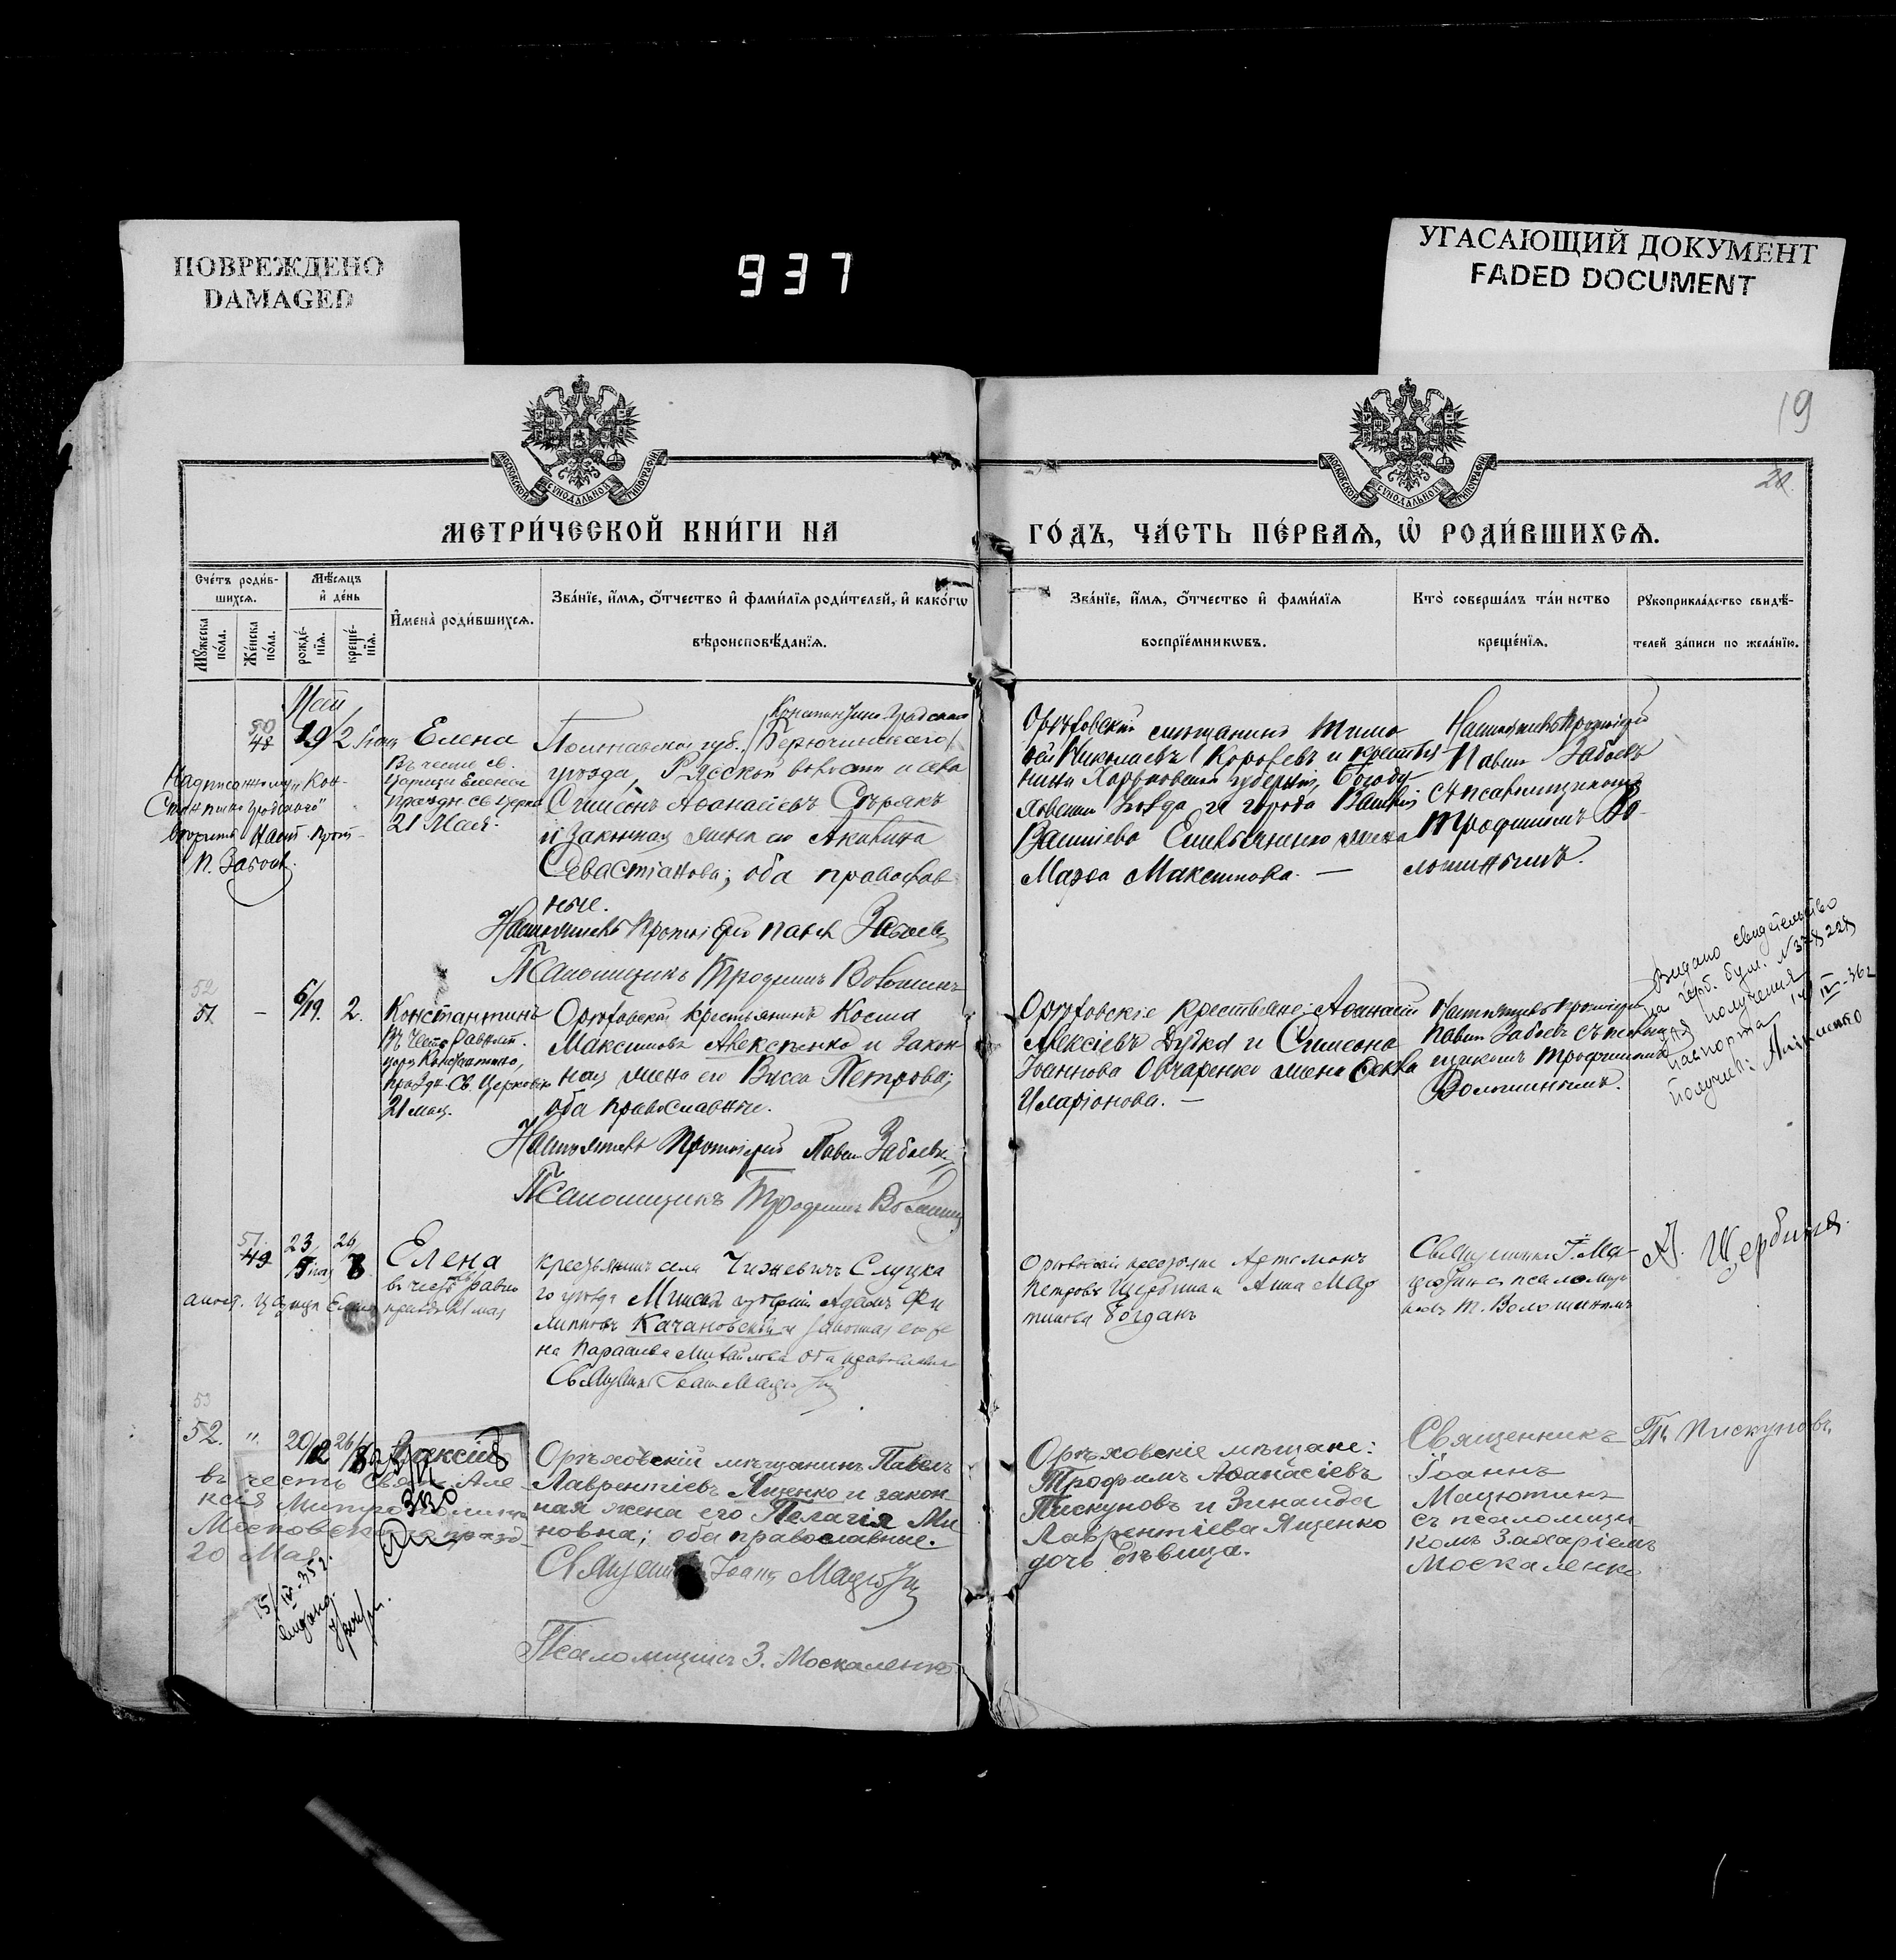 ПОВРЕЖДЕНО
DAMAGED
937
УГАСАЮЩИЙ ДОКУМЕНТ
FADED DOCUMENT
19
20.
МОСКОВСКОЙ СѴНОДАЛЬНОЙ ТИПОГРАФІИ
МОСКОВСКОЙ СѴНОДАЛЬНОЙ ТИПОГРАФІИ
МЕТРИ́ЧЕСКОЙ КНИ́ГИ НА
ГО́ДЪ, ЧА́СТЬ ПЕ́РВАѦ, Ѡ҆ РОДИ́ВШИХСѦ.
Сче́тъ роди́в-
шихсѧ.
Мꙋ́жеска
по́ла.
Же́нска
по́ла.
Мѣ́сѧцъ
и҆ де́нь
рожде́-
нїѧ.
креще́-
нїѧ.
И҆мена̀ роди́вшихсѧ.
Зва́нїе, и҆́мѧ, ѻ҆́тчество и҆ фами́лїѧ роди́телей, и҆ како́гѡ
вѣроисповѣ́данїѧ.
Зва́нїе, и҆́мѧ, ѻ҆́тчество и҆ фами́лїѧ
воспрїе́мникѡвъ.
Кто̀ соверша́лъ та́инство
креще́нїѧ.
Рꙋкоприкла́дство свидѣ́-
телей за́писи по жела́нїю.
50
48
19 2 Елена
Въ честь св.
Царицы Елены
праздн. св. Церко
21 Мая.
Надписанному „Кон-
стантиноградскаго"
вѣрить Наст. Прот.
П. Забоев.
Константиноградскаго
Полтавской губ., Берючинскаго
уѣзда, Рясской волости и села
Симеонъ Аѳанасіевъ Стеряхъ
и законная жена его Акилина
Севастіанова; оба православ
ные.
Настоятель Протоіерей Павелъ Забоевъ
Псаломщикъ Трофимъ Волошинъ
Орѣховскій мѣщанинъ Тимо
ѳей Николаевъ Королевъ и крестья
нина Харьковской губерніи, Богоду
ховскаго уѣзда города
Василіева Емельяненко жена
Марѳа Максимова. —
Настоятель Протоіерей
Павелъ Забоевъ
съ псаломщикомъ
Трофимомъ Во-
лошинымъ.
52
51 — 6/19. 2. Константинъ
Въ честь Равноап.
царя Константина,
праздн. Св. Церковью
21 мая.
Орѣховскій крестьянинъ Косма
Максимовъ Алексѣенко и закон
ная жена его Васса Петрова;
оба православные.
Настоятель Протоіерей Павелъ Забоевъ
Псаломщикъ Трофимъ Волошинъ
Орѣховскіе крестьяне: Аѳанасій
Алексіевъ Дудка и Симеона
Іоаннова Овчаренко жена Ѳекла
Иларіонова. —
Настоятель протоіерей
Павелъ Забоевъ съ псалом
щикомъ Трофимомъ
Волошинымъ.
Видано свидетельство
на герб. бум. № 378221
для получения
паспорта 14/IV-36г
получив:
51.
49 23 26 8 Елена
въ честь св. равно
апост. царицы Елены
праздн. 21 мая
крестьянинъ села Чижевичъ Слуцка
го уѣзда Минской губерніи Адамъ Фи
липповъ Качановскій и законная его же
на Параскева Михайлова оба православные
Священникъ Іоаннъ Мацютинъ
Орѣховскій Артемонъ
Петровъ Щербина и Анна Мар
тинова Богданъ
Священникъ І. Ма-
цютинъ съ псаломщи
комъ Т. Волошинымъ
А. Щербина.
53
52. " 20 26 Алексій
въ честь Святит. Але
ксія Митрополита
Московскаго празд
20 Мая
15/IV-35г.
видано
Орѣховскій мѣщанинъ Павелъ
Лаврентіевъ Яценко и закон
ная жена его Пелагія Ми
новна; оба православные.
Священникъ Іоаннъ Мацютинъ
Псаломщикъ З. Москаленко
Орѣховскіе мѣщане:
Трофимъ Аѳанасіевъ
Пискуновъ и Зинаида
Лаврентіева Яценко
дочь дѣвица.
Священникъ
Іоаннъ
Мацютинъ
съ псаломщи
комъ Захаріемъ
Москаленко
Тр. Пискуновъ.